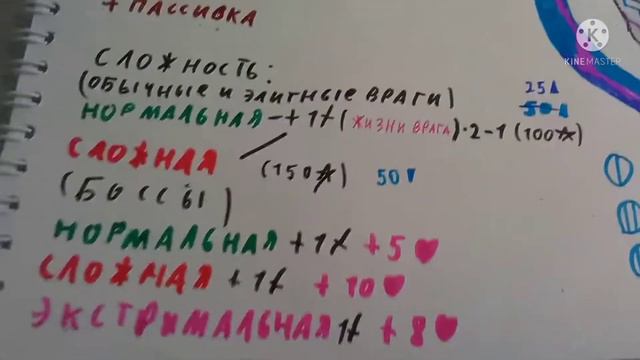 + ПАССИВКА
СЛОЖНОСТЬ:
(ОБЫЧНЫЕ И ЭЛИТНЫЕ ВРАГИ)
НОРМАЛЬНАЯ - + 1 (ЖИЗНИ ВРАГА) · 2 - 1 (100☆)
25
50
СЛОЖНАЯ (150☆) 50
(БОССЫ)
НОРМАЛЬНАЯ + 1 + 5 ♥
СЛОЖНАЯ + 1 + 10 ♥
ЭКСТРИМАЛЬНАЯ 1 + 8 ♥
KINEMASTER